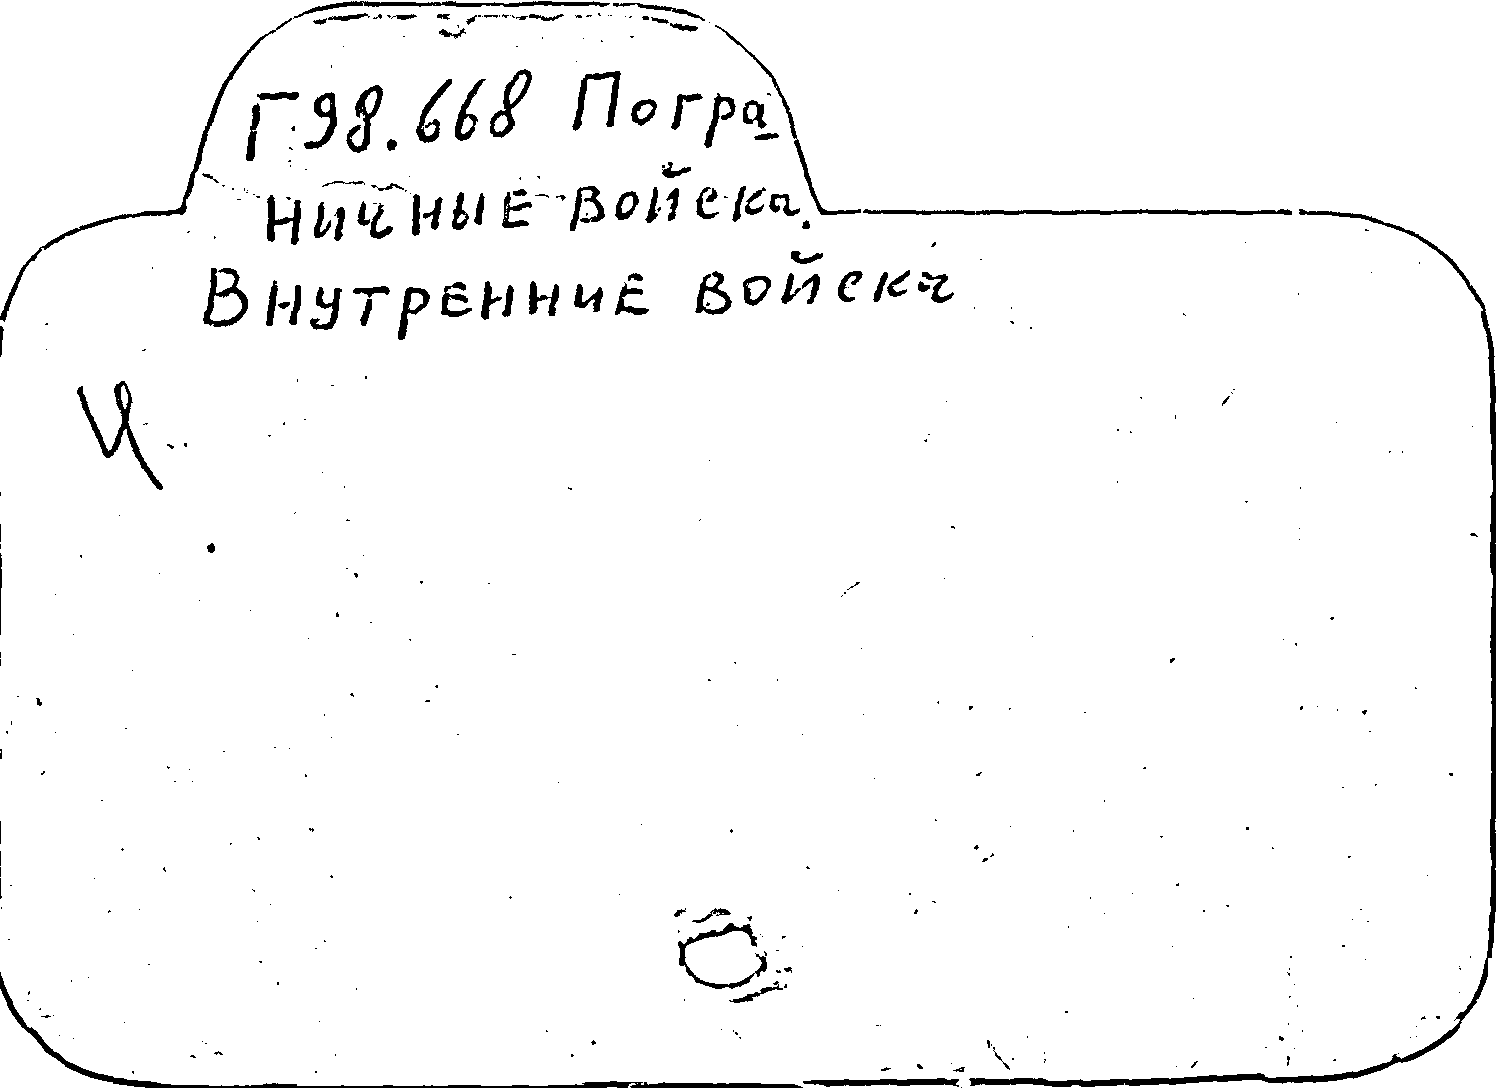 Г98.668 Погра
ничные войска.
Внутренние войска